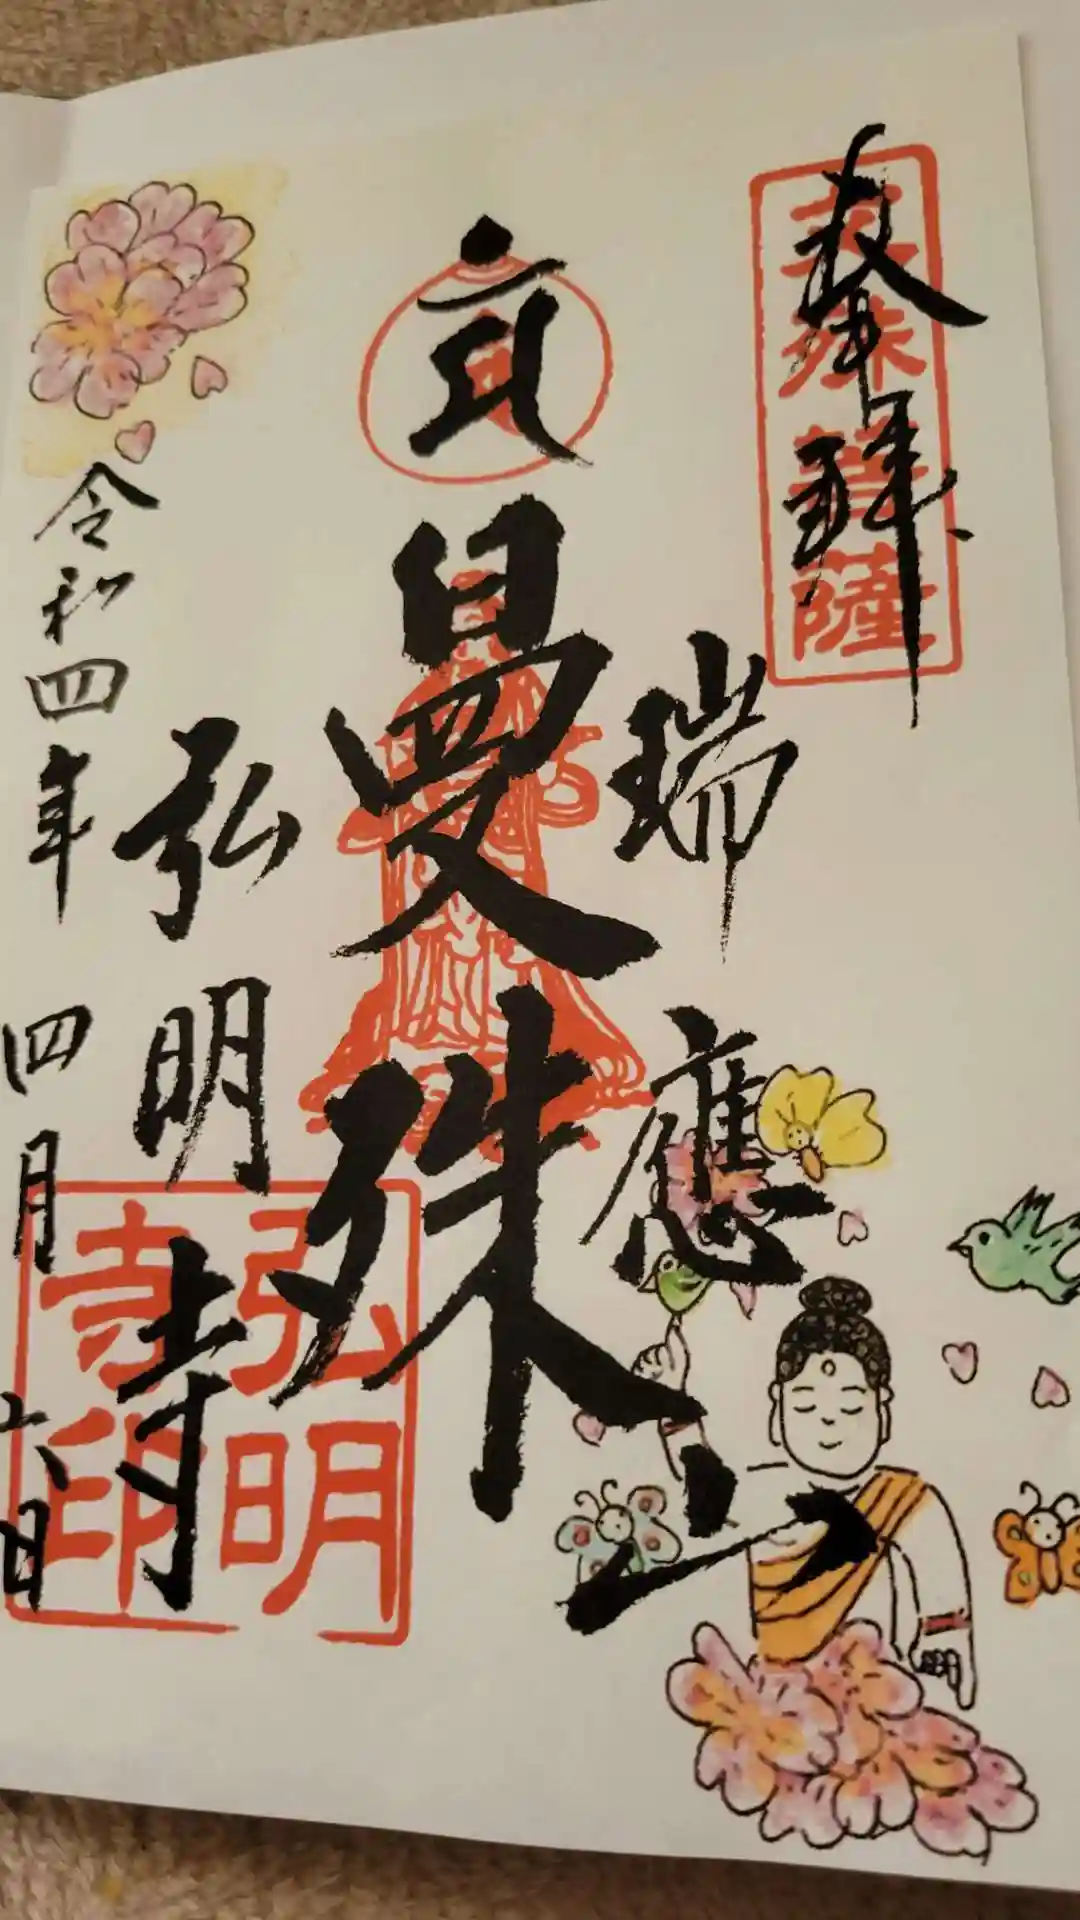 奉拝
文殊菩薩
瑞應山
曼殊
弘明寺
弘明寺印
令和四年四月六日